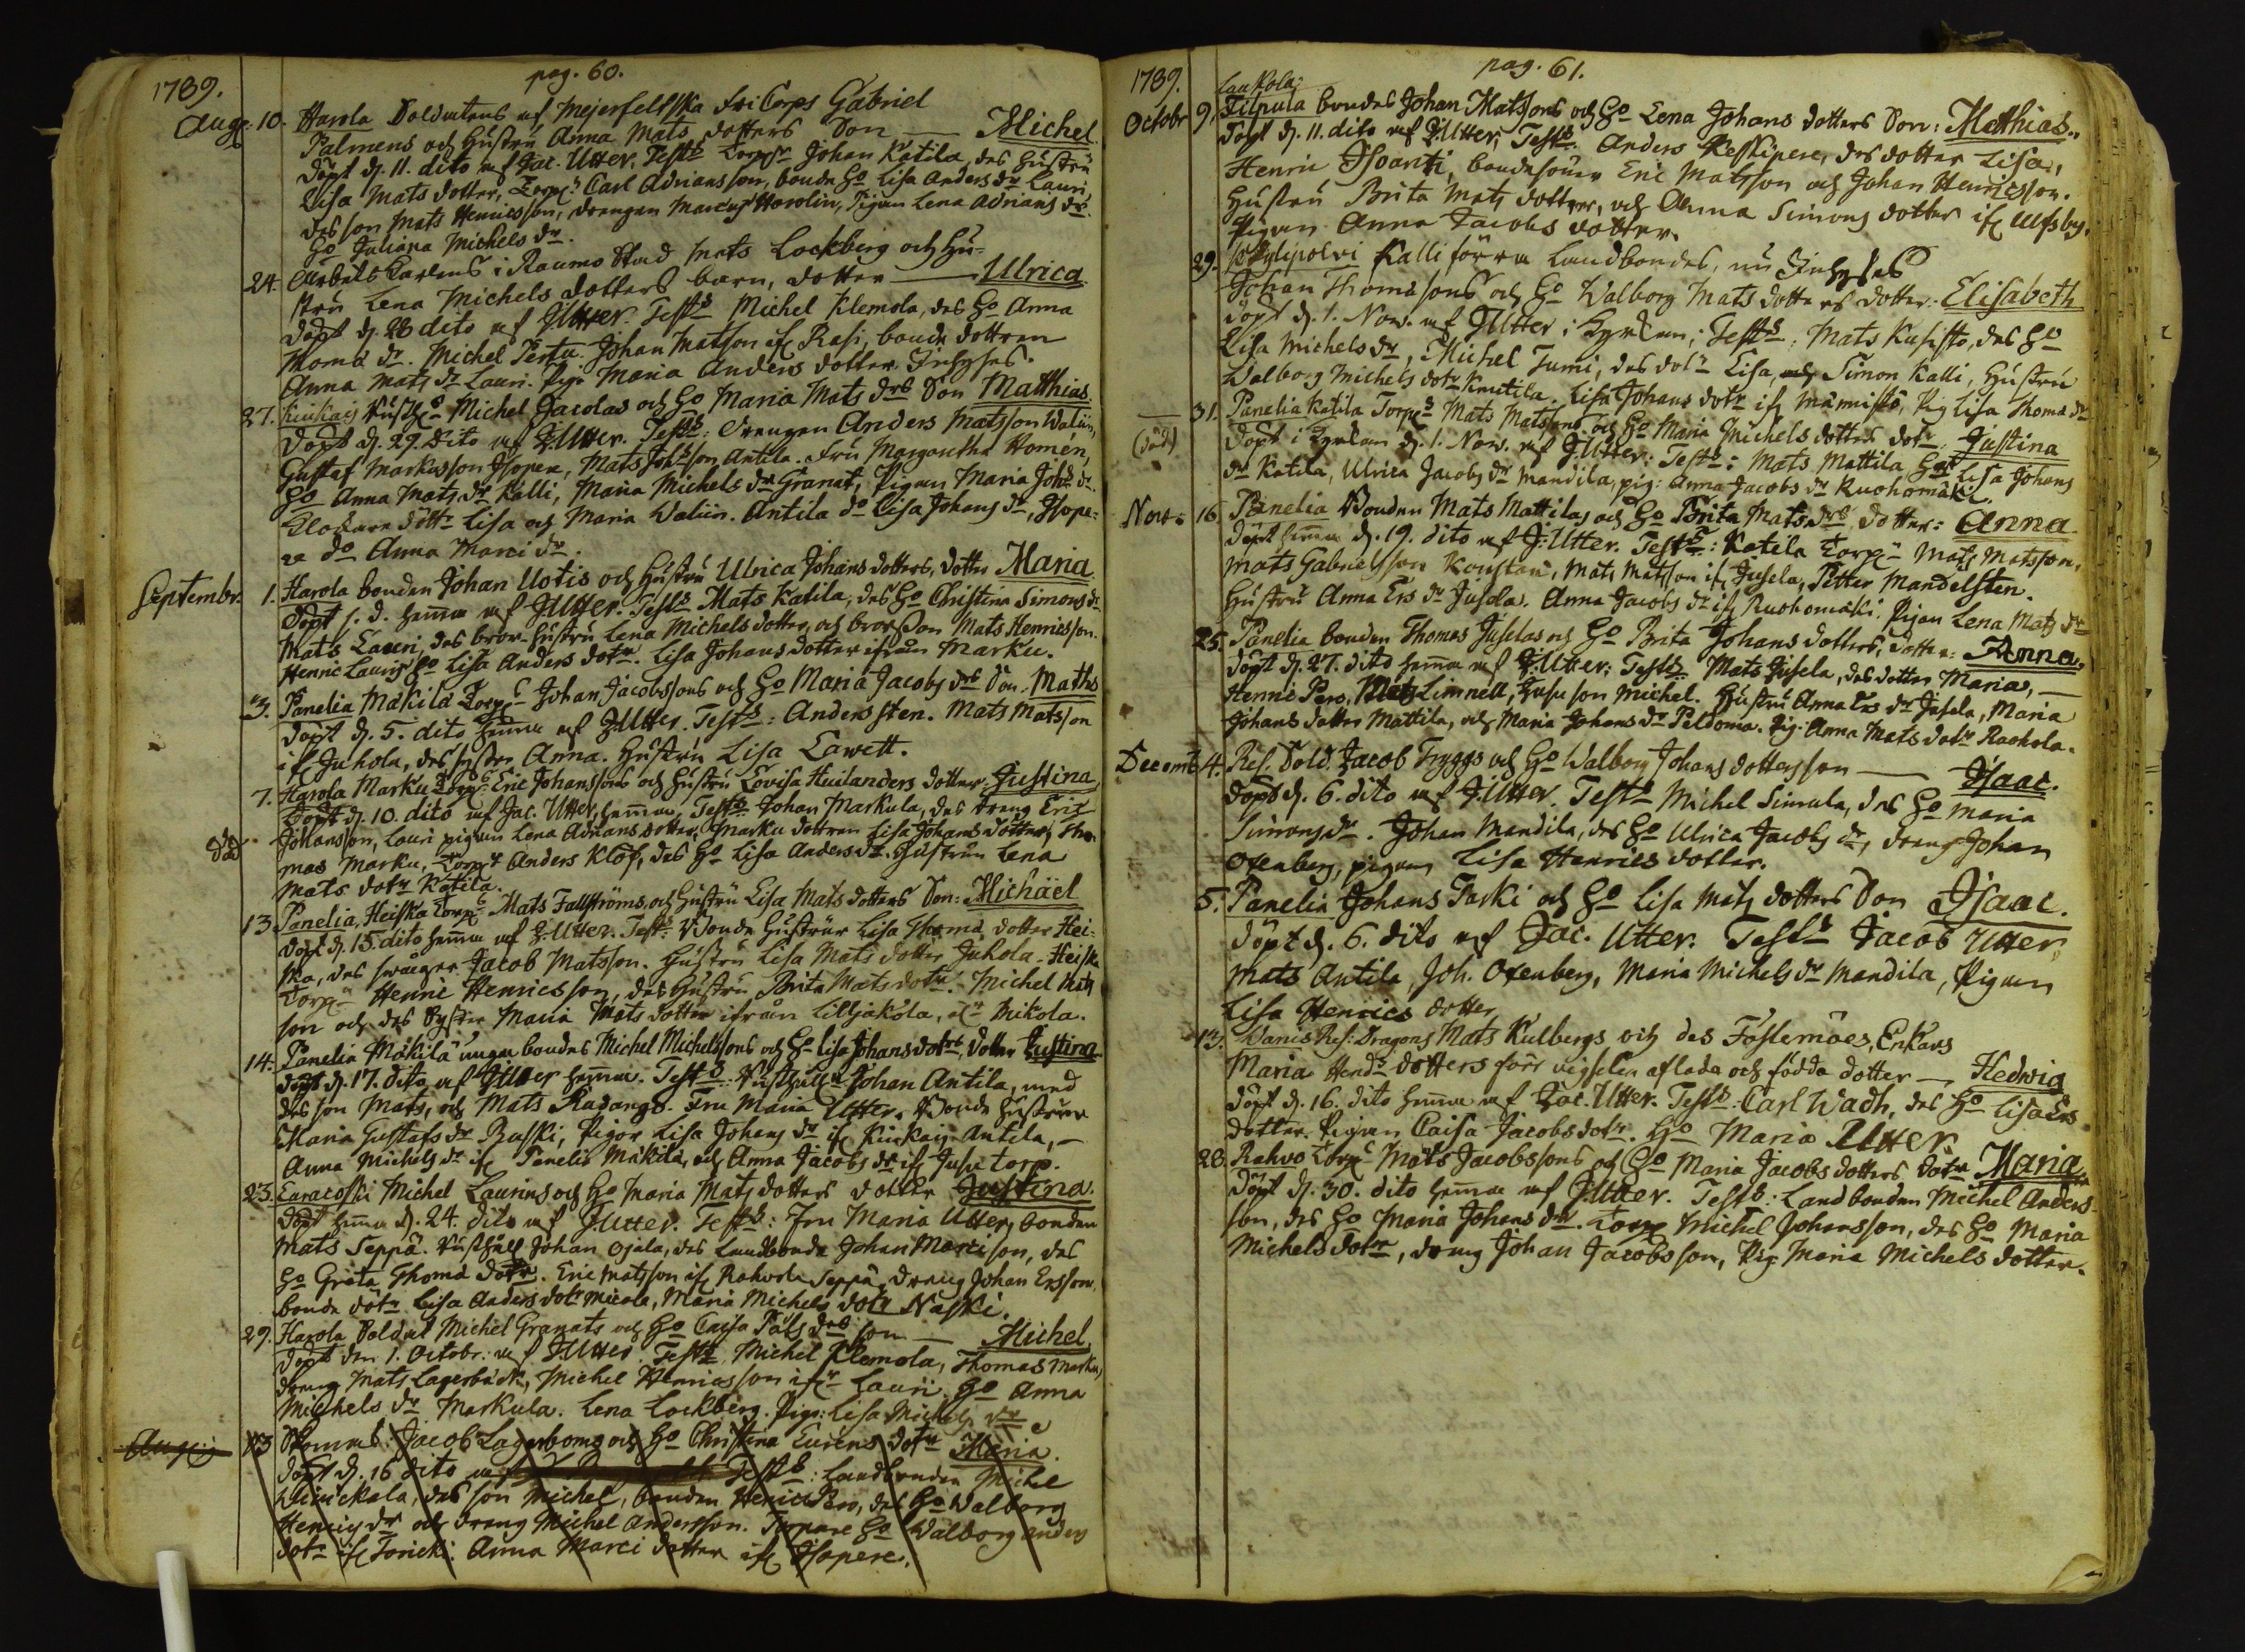 pag. 60.
1789.
Aug. 10. Harola Soldatens af Meijerfeltska friCorps Gabriel
Palmens och hustru Anna Mats dotters Son — Michel.
döpt d. 11. dito af Jac. Utter. Test: Torp. Johan Katila, des hustru
Lisa Mats dotter, Torp. Carl Adriansson, bonde Ho Lisa Anders dr Lauri,
des son Mats Henricsson, drengen Marcus Harolin, Pigan Lena Adrians dr.
Ho Juliana Michels dr.
24. Arbets Karlens i Raumo Stad Mats Lockberg och Hu-
stru Lena Michels dotters barn, dotter — Ulrica
döpt d. 28 dito af J Utter. Test: Michel Klemola, des Ho Anna
Thoma dr. Michel Pertu. Johan Matsson if Rasi, bonde dottren
Anna Mats dr Lauri. Pig. Maria Anders dotter Inhyses.
27. Kiukais Rusth. Michel Jacolas och Ho Maria Mats drs Son Matthias.
döpt d. 29. dito af J. Utter. Test: Drengen Anders Matsson Walin,
Gustaf Markusson Isopere, Mats Johsson Antila. Fru Margaretha Homén,
Ho Anna Mats dr Kalli, Maria Michels dr Granat, Pigan Maria Joh. dr.
Klockare dottr. Lisa och Maria Walin. Antila do Lisa Johans dr, Isope-
re do Anna Marci dr.
Septembr. 1. Harola bonden Johan Uotis och hustru Ulrica Johans dotters, dotter Maria.
döpt s. d. hema af J Utter. Test: Mats Katila, des Ho Christina Simons dr.
Mats Lauri, des bror hustru Lena Michels dotter, och brorson Mats Henricsson.
Henric Lauris Ho Lisa Anders dotr. Lisa Johans dotter ifrån Marku.
3. Panelia Mäkilä Torp. Johan Jacobssons och Ho Maria Jacobs drs Son. Maths
döpt d. 5. dito hema af J Utter. Test: Anders Sten. Mats Matsson
if Juhola, des syster Anna. Hustru Lisa Lawett.
7. Harola Marku Torp. Eric Johanssons och hustru Lovisa Huilanders dotter Justina
död döpt d. 10. dito af Jac. Utter, hemma, Test: Johan Markula, des dreng Eric
Johansson, Lauri pigan Lena Adrians dotter, Marku dottren Lisa Johans dotter, Tho-
mas Marku, Torp. Anders Klöf, des Ho Lisa Anders dr. Hustrun Lena
Mats dotr Katila.
13 Panelia, Heiska Torp. Mats Fallströms och hustru Lisa Mats dotters Son: Michäel
döpt d. 15. dito hema af J. Utter. Test: Bonde hustrur Lisa Thoma dotter Hei-
ska, des swåger Jacob Matsson. Hustru Lisa Mats dotter Juhola. Heiska
Torp. Henric Henricsson, des hustru Brita Mats dotr. Michel Mats
son och des Syster Maria Mats dotter ifrån Lilljakola, Mikola.
14. Panelia Mäkilä unga bondes Michel Michelssons och Ho Lisa Johans dotrs, dotter Justina
döpt d. 17. dito af J Utter hema. Test: Rusthåll. Johan Antila, med
des son Mats, och Mats Radangs. Fru Maria Utter. Bonde hustrur
Maria Gustafs dr Buski, Pigor Lisa Johans dr if Kiukais Antila,
Anna Michels dr if Panelia Mäkilä, och Anna Jacobs dr if Jusu torp.
23. Euracoski Michel Laurins och Ho Maria Mats dotters dotter Justina.
döpt hema d. 24. dito af J Utter. Test: Fru Maria Utter, bonden
Mats Seppä. Rusthåll Johan Ojala, des Landbonde Johan Marcisson, des
Ho Greta Thoma dotr. Eric Matsson if Rahvola Seppä, dreng Johan Ersson.
bonde dotr. Lisa Anders dotr Micola, Maria Michels dotr Naski.
29. Harola Soldat Michel Granats och Ho Caisa Påls drs son — Michel,
döpt den 1. Octobr. af J. Utter. Test: Michel Klemola, Thomas Marku,
dreng Mats Lagerbäck, Michel Henricsson if Lauri. Ho Anna
Michels dr Markula. Lena Lockberg. Pig: Lisa Michels dr
Augusti 13 Skomak. Jacob Lagerboms och Ho Christina Eurens dotr Maria.
döpt d. 16 dito af Test: Landbonden Michel
des son Michel, bonden Henric Pero, des Ho Walborg
Henrics dr och dreng Michel Andersson. Torpare Ho Walborg Anders
dotr if Anna Marci dotter if Isopere.
pag. 61.
1789.
Laukola
Octobr 9. Filpula bondes Johan Matssons och Ho Lena Johans dotters Son: Mathias.
döpt d. 11. dito af J Utter, Test: Anders Keskipere, des dotter Lisa,
Henric Isoanti, bondesöner Eric Matsson och Johan Henricsson.
Hustru Brita Mats dotter, och Anna Simons dotter if Ulfsby.
Pigan Anna Jacobs dotter.
29. Kylipolvi Kalli förra Landbondes, nu Inhyses
Johan Thomassons och Ho Walborg Mats dotters dotter: Elisabeth
döpt d. 1. Nov. af J Utter i Kyrkan; Test: Mats Kusisto, des Ho
Lisa Michels dr, Michel Tumi, des dotr Lisa, Simon Kalli, hustru
Walborg Michels dotr Knutila. Lisa Johans dotr if Männistö, Pig Lisa Thoma dr
31. Panelia Katila Torp. Mats Matssons och Ho Maria Michels dotters dotr: Justina
(död) döpt i Kyrkan d. 1. Nov. af J Utter: Test: Mats Mattila Ho Lisa Johans
dr Katila, Ulrica Jacobs dr Mandila, pig: Anna Jacobs dr Ruohomäki
Nov. 16. Panelia Bonden Mats Mattilas och Ho Brita Mats drs dotter: Anna
döpt hema d. 19. dito af J: Utter. Test: Katila Torp. Mats Matsson,
Mats Gabrielsson Konstari, Mats Matsson if Jusela, Petter Mandelsten.
Hustru Anna Ers dr Jusela. Anna Jacobs dr if Ruohomäki. Pigan Lena Mats dr
25. Panelia bonden Thomas Juselas och Ho Brita Johans dotters, dotter: Anna,
döpt d. 27. dito hema af J. Utter: Test: Mats Jusela, des dotter Maria,
Henric Pero, Mats Limnell, Jusu son Michel. Hustru Anna Ers dr Jusela, Maria
Johans dotter Mattila, och Maria Johans dr Peldoma. Pig. Anna Mats dotr Raohola.
Decemb. 4. Res. Sold. Jacob Tryggs och Ho Walborg Johans dotters son — Isaac.
döpt d. 6. dito af J. Utter. Test: Michel Simula, des Ho Maria
Simons dr. Johan Mandila, des Ho Ulrica Jacobs dr, dreng Johan
Oxenberg, pigan Lisa Henrics dotter.
5. Panelia Johans Taski och Ho Lisa Mats dotters Son Isaac.
döpt d. 6. dito af Jac. Utter. Test: Jacob Utter,
Mats Antila, Joh. Oxenberg, Maria Michels dr Mandila, Pigan
Lisa Henrics dotter
13. Wanis Res: Dragons Mats Kulbergs och des Fästemöes, Enkans
Maria Hend. dotters förr vigselen aflada och födda dotter — Hedwig
döpt d. 16. dito hemma af Jac. Utter. Test: Carl Wadh, des Ho Lisa Ers
dotter. Pigan Caisa Jacobs dotr. Ho Maria Utter
28. Rahvo Torp. Mats Jacobssons och Ho Maria Jacobs dotters dotr Maria
döpt d. 30. dito hema af J Utter. Test: Landbonden Michel Anders-
son, des Ho Maria Johans dr. Torp Michel Johansson, des Ho Maria
Michels dotr, dreng Johan Jacobsson, Pig Maria Michels dotter.